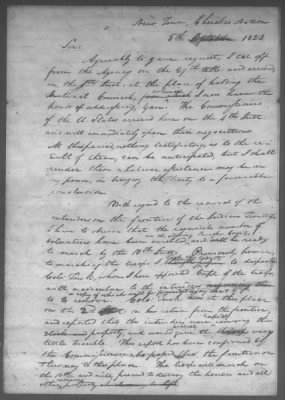 New Town, Cherokee Nation
5th October 1823
Sir,
Agreeably to your request, I set off
from the Agency on the 29th Ulto. and arrived,
on the first Inst. at the place of holding the
National Council, from I now have the
honor of addressing you. The Commissioners
of the U States arrived here on the 4th Inst.
and will immediately open their negociations
At this period, nothing satisfactory, as to the re-
sult of them, can be anticipated, but I shall
render them whatever assistance may be in
my power, in bringing the to a favourable
conclusion.
With regard to the removal of the
intruders on the frontiers of the Indian
I have to observe that the requisite number of
volunteers have been enrolled, and will be ready
to march by the 10th Inst. Previously however,
to marching the troops, I to dispatch
Colo. whom I have appointed Capt. of the troops,
with
to Colo. at this place
on the 2d in his return from the frontiers
and reported that the intruders were removing their
stock and property, and would give the very
little trouble. This report has been confirmed by
the Commissioners who passed the frontier on
their way to this place. The troops will march on
the 10th and will proceed to destroy the houses and all
other property